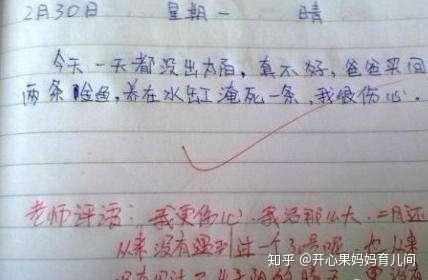 2月30日 星期一 晴
今天一天都没出太阳,真不好,爸爸买回
两条金鱼,养在水缸淹死一条,我很伤心.
老师评语:我更伤心.我活那么大.二月还
从来没有遇到过一个30号呢.也从来
知乎 @开心果妈妈育儿间